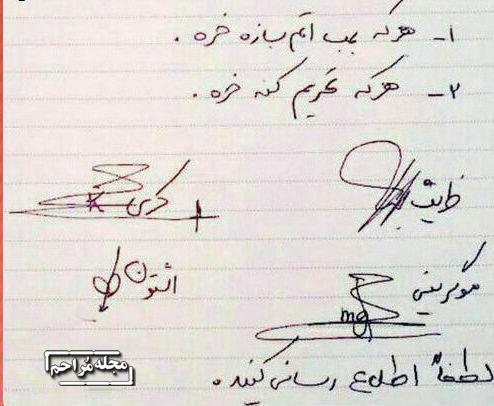 ۱- هرکه بمب اتم بسازه خره .
۲- هرکه تحریم کنه خره .
ظریف کری K
موگرینی mg اشتون
لطفاً اطلاع رسانی کنید .
مجله مزاحم